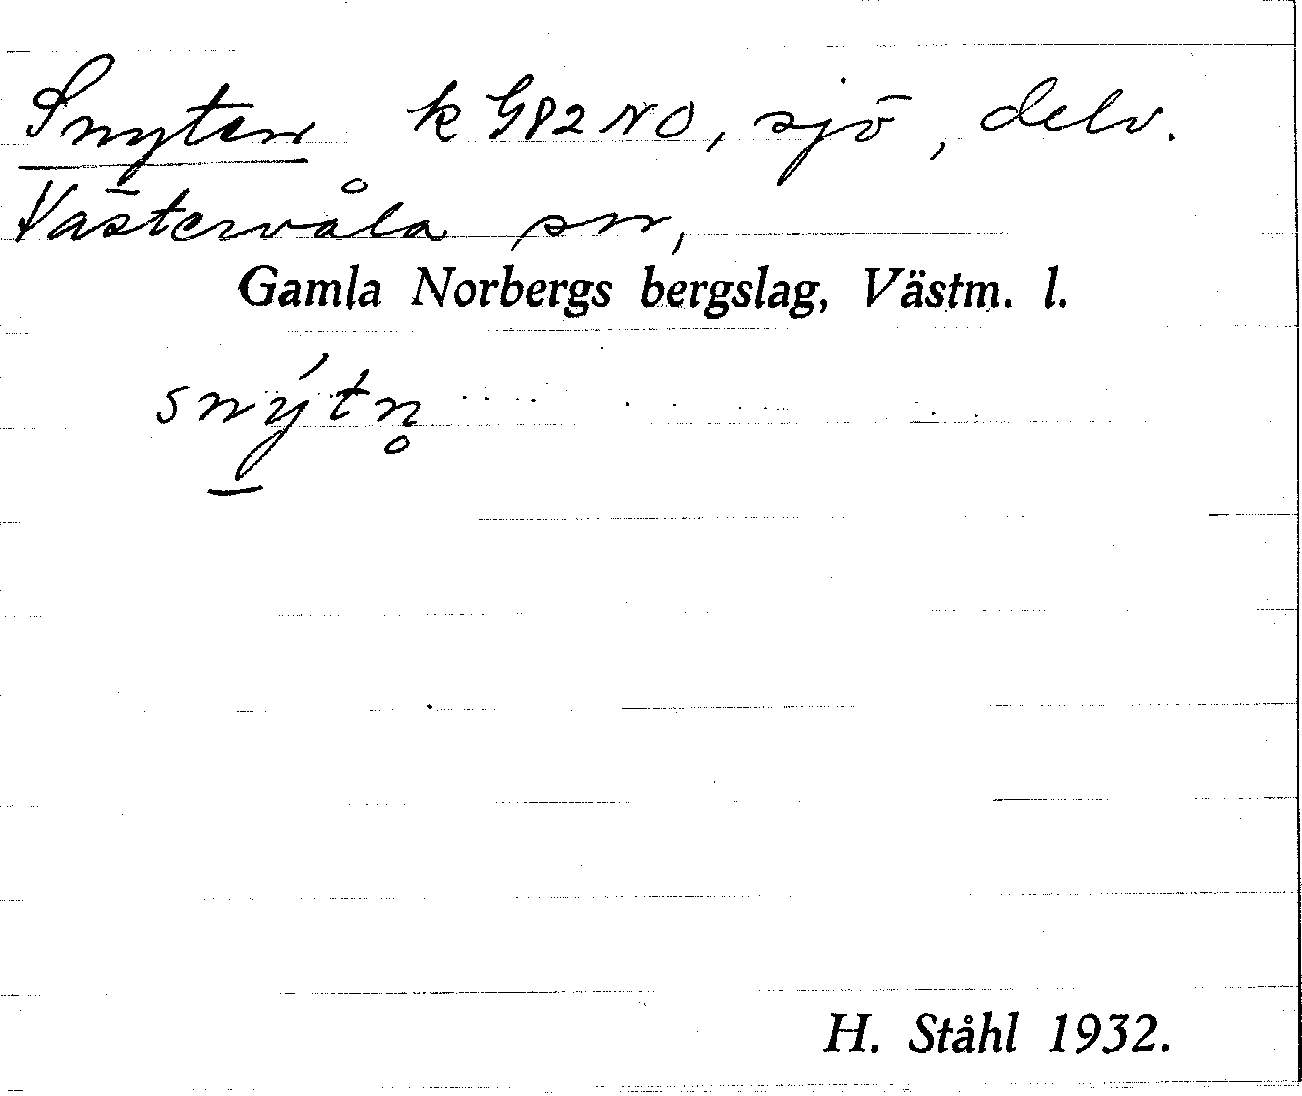 Snyten k G82NO, sjö, delv.
Västervåla sn,
Gamla Norbergs bergslag, Västm. l.
snýtn̥
H. Ståhl 1932.